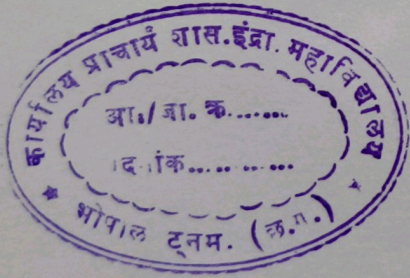 कार्यालय प्राचार्य शास.इंद्रा. महाविद्यालय
आ./जा. क्र.......
दिनांक...........
भोपाल ट्नम. (छ.ग.)